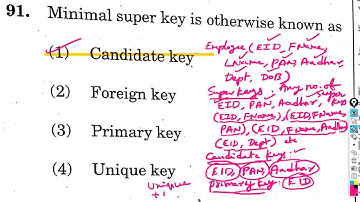 91. Minimal super key is otherwise known as
(1) Candidate key
(2) Foreign key
(3) Primary key
(4) Unique key
Employee (EID, FName,
LName, PAN, Aadhar,
Dept, DOB)
Super Keys : Any no. of super
EID, PAN, Aadhar, keys
(EID, FName), (EID, FName,
PAN), (EID, FName, Aadhar)
(EID, Dept) etc
Candidate Keys :-
EID, PAN, Aadhar
Primary Key : EID
Unique